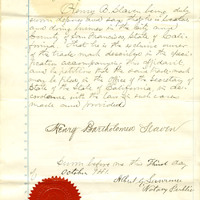 Henry B. Slaven being duly
sworn deposes and say that he is located
and doing business in the City and
County of San Francisco, State of Cali-
fornia. That he is the exclusive owner
of the trade mark described in the speci-
fication accompanying this affidavit
and he petitions that the said trade mark
may be filed in the office of the Secretary of
State of the State of California, in
accordance with the law in such cases
made and provided
Henry Bartholomew Slaven
Sworn before me this Third day
of October 18
Albert
Notary Public